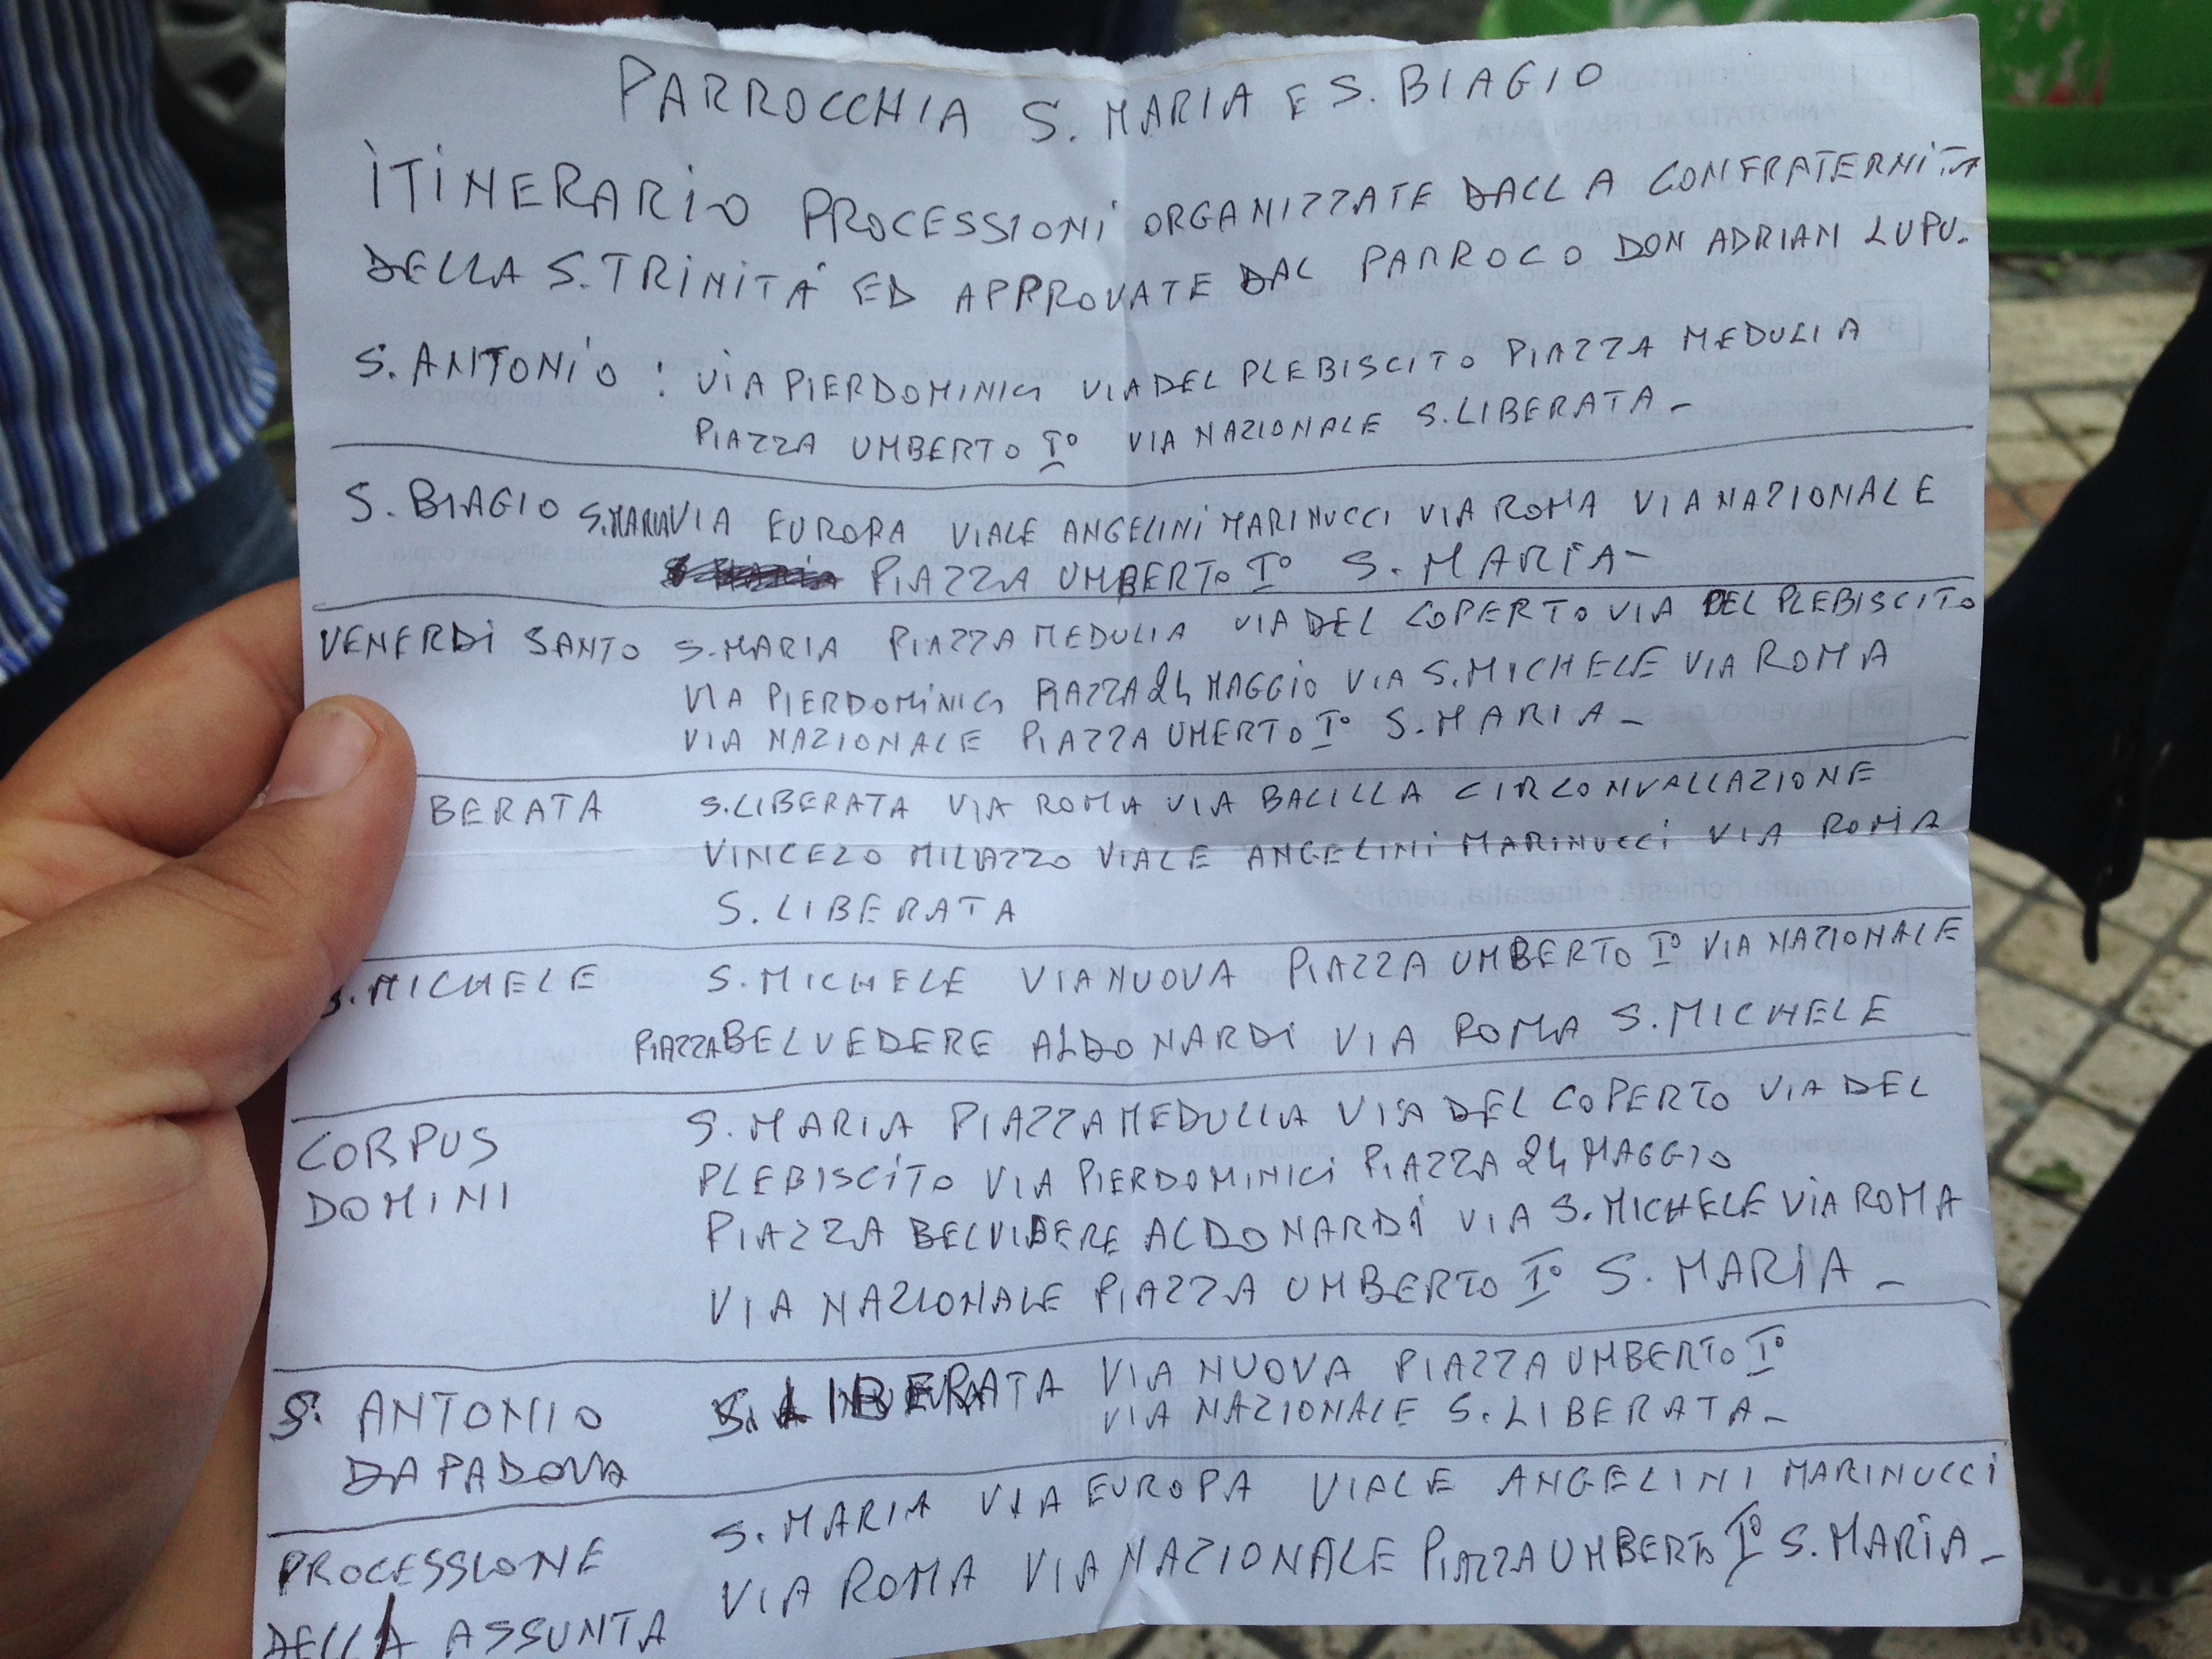 PARROCCHIA S. MARIA E S. BIAGIO
ITINERARIO PROCESSIONI ORGANIZZATE DALLA CONFRATERNITA
DELLA S. TRINITÁ ED APPROVATE DAL PARROCO DON ADRIAN LUPU.
S. ANTONIO : VIA PIERDOMINICI VIA DEL PLEBISCITO PIAZZA MEDULIA
PIAZZA UMBERTO I° VIA NAZIONALE S. LIBERATA -
S. BIAGIO S. MARIA VIA EUROPA VIALE ANGELINI MARINUCCI VIA ROMA VIA NAZIONALE
PIAZZA UMBERTO I° S. MARIA -
VENERDI SANTO S. MARIA PIAZZA MEDULIA VIA DEL COPERTO VIA DEL PLEBISCITO
VIA PIERDOMINICI PIAZZA 24 MAGGIO VIA S. MICHELE VIA ROMA
VIA NAZIONALE PIAZZA UMERTO I° S. MARIA -
BERATA S. LIBERATA VIA ROMA VIA BALILLA CIRCONVALLAZIONE
VINCEZO MILAZZO VIALE ANGELINI MARINUCCI VIA ROMA
S. LIBERATA
S. MICHELE S. MICHELE VIA NUOVA PIAZZA UMBERTO I° VIA NAZIONALE
PIAZZA BELVEDERE ALDO NARDI VIA ROMA S. MICHELE
CORPUS DOMINI S. MARIA PIAZZA MEDULLIA VIA DEL COPERTO VIA DEL
PLEBISCITO VIA PIERDOMINICI PIAZZA 24 MAGGIO
PIAZZA BELVIDERE ALDO NARDI VIA S. MICHELE VIA ROMA
VIA NAZIONALE PIAZZA UMBERTO I° S. MARIA -
S. ANTONIO DA PADOVA S. LIBERATA VIA NUOVA PIAZZA UMBERTO I°
VIA NAZIONALE S. LIBERATA -
PROCESSIONE DELLA ASSUNTA S. MARIA VIA EUROPA VIALE ANGELINI MARINUCCI
VIA ROMA VIA NAZIONALE PIAZZA UMBERTO I° S. MARIA -